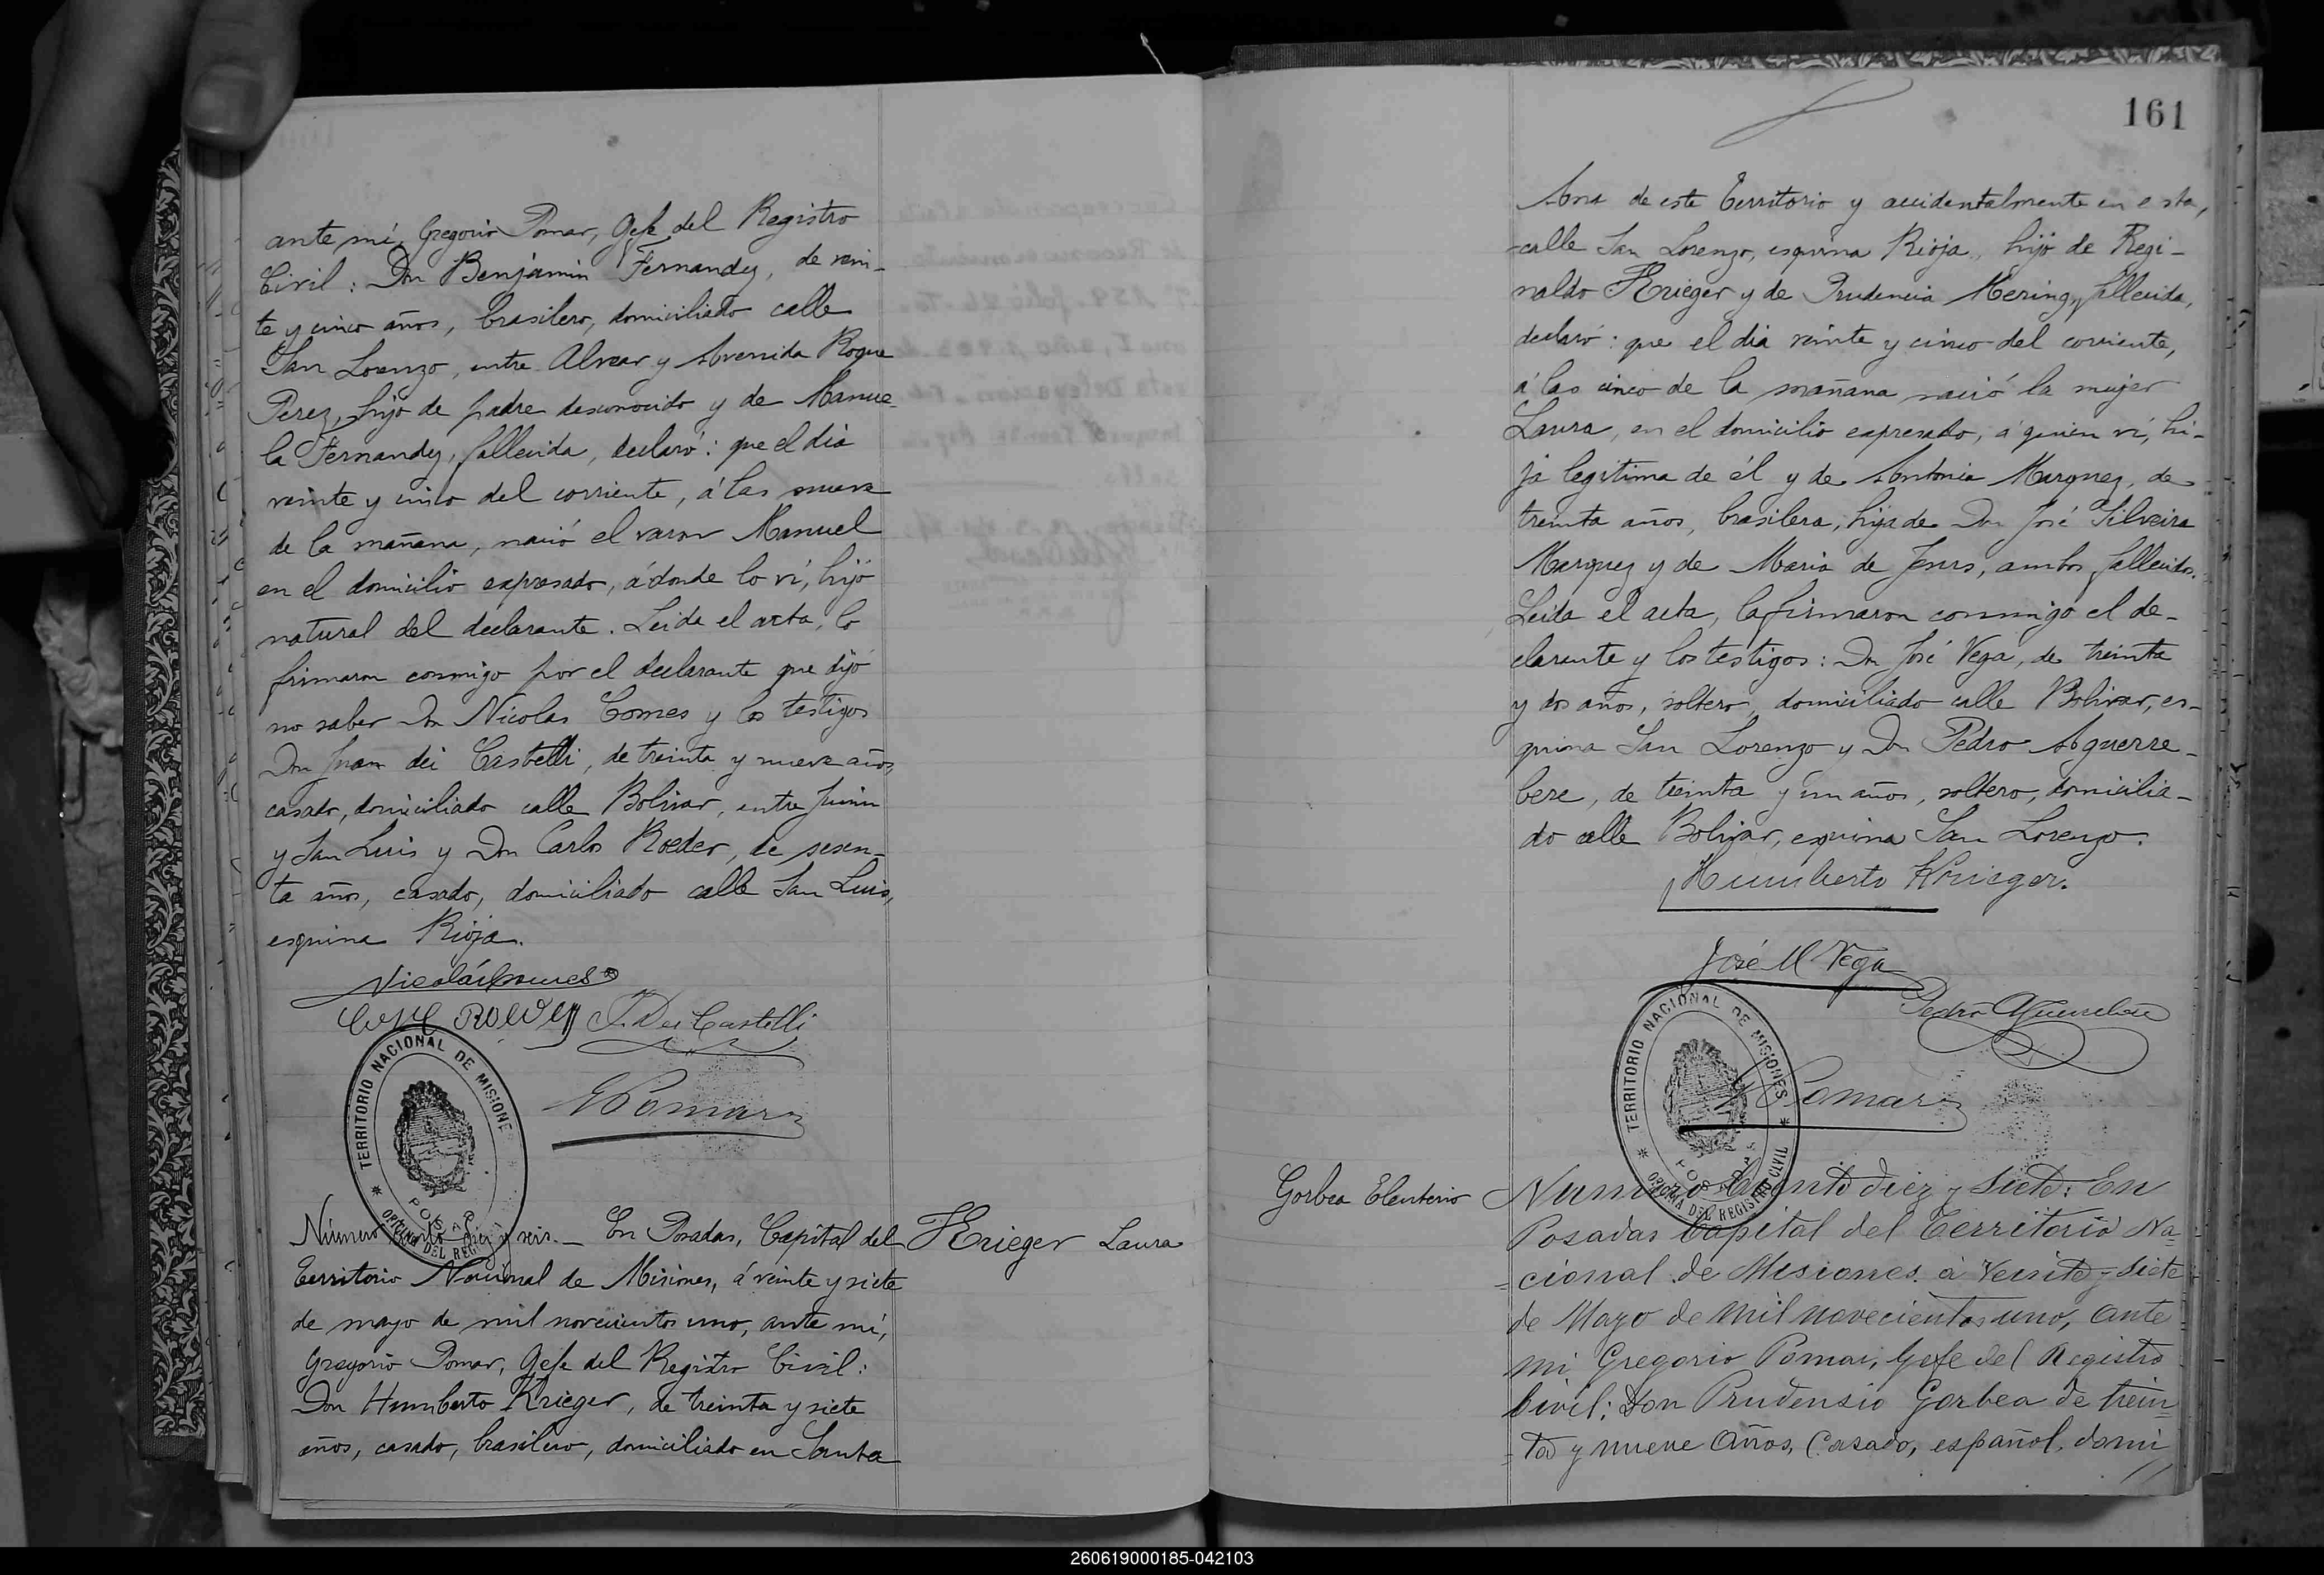 ante mí, Gregorio Pomar, Gefe del Registro
Civil: Don Benjamin Fernandez, de vein-
te y cinco años, brasilero, domiciliado calle
San Lorenzo, entre Alvear y Avenida Roque
Perez, hijo de padre desconocido y de Manue-
la Fernandez, fallecida, declaró: que el dia
veinte y cinco del corriente, á las nueve
de la mañana, nació el varon Manuel
en el domicilio expresado, á donde lo ví, hijo
natural del declarante. Leida el acta, lo
firmaron conmigo por el declarante que dijo
no saber Don Nicolas Comes y los testigos
Don Juan dei Castelli, de treinta y nueve años,
casado, domiciliado calle Bolivar, entre Junin
y San Luis y Don Carlos Roeder, de sesen-
ta años, casado, domiciliado calle San Luis,
esquina Rioja.
Nicolás Comes
J. Dei Castelli
GPomar
TERRITORIO NACIONAL DE MISIONES
POSADAS
OFICINA DEL REGISTRO CIVIL
Krieger Laura
Número ciento diez y seis.— En Posadas, Capital del
Territorio Nacional de Misiones, á veinte y siete
de mayo de mil novecientos uno, ante mí,
Gregorio Pomar, Gefe del Registro Civil:
Don Humberto Krieger, de treinta y siete
años, casado, brasilero, domiciliado en Santa
161
Ana de este Territorio y accidentalmente en esta,
calle San Lorenzo, esquina Rioja, hijo de Regi-
naldo Krieger y de Prudencia Mering, fallecida,
declaró: que el dia veinte y cinco del corriente,
á las cinco de la mañana nació la mujer
Laura, en el domicilio expresado, á quien ví, hi-
ja legitima de él y de Antonia Marquez, de
treinta años, brasilera, hija de Don José Silveira
Marquez y de Maria de Jesus, ambos fallecidos.
Leida el acta, la firmaron conmigo el de-
clarante y los testigos: Don José Vega, de treinta
y dos años, soltero, domiciliado calle Bolivar, es-
quina San Lorenzo y Don Pedro Aguerre-
bere, de treinta y un años, soltero, domicilia-
do calle Bolivar, esquina San Lorenzo.
Humberto Krieger.
José M Vega
Pedro Aguerrebere
GPomar
TERRITORIO NACIONAL DE MISIONES
POSADAS
OFICINA DEL REGISTRO CIVIL
Gorbea Eleuterio
Numero Ciento diez y siete: En
Posadas Capital del Territorio Na=
=cional de Misiones á Veinte y siete
de Mayo de mil novecientos uno, ante
mi Gregorio Pomar, Gefe del Registro
Civil: Don Prudensio Gorbea de trein=
=ta y nueve Años, Casado, español, domi
260619000185-042103